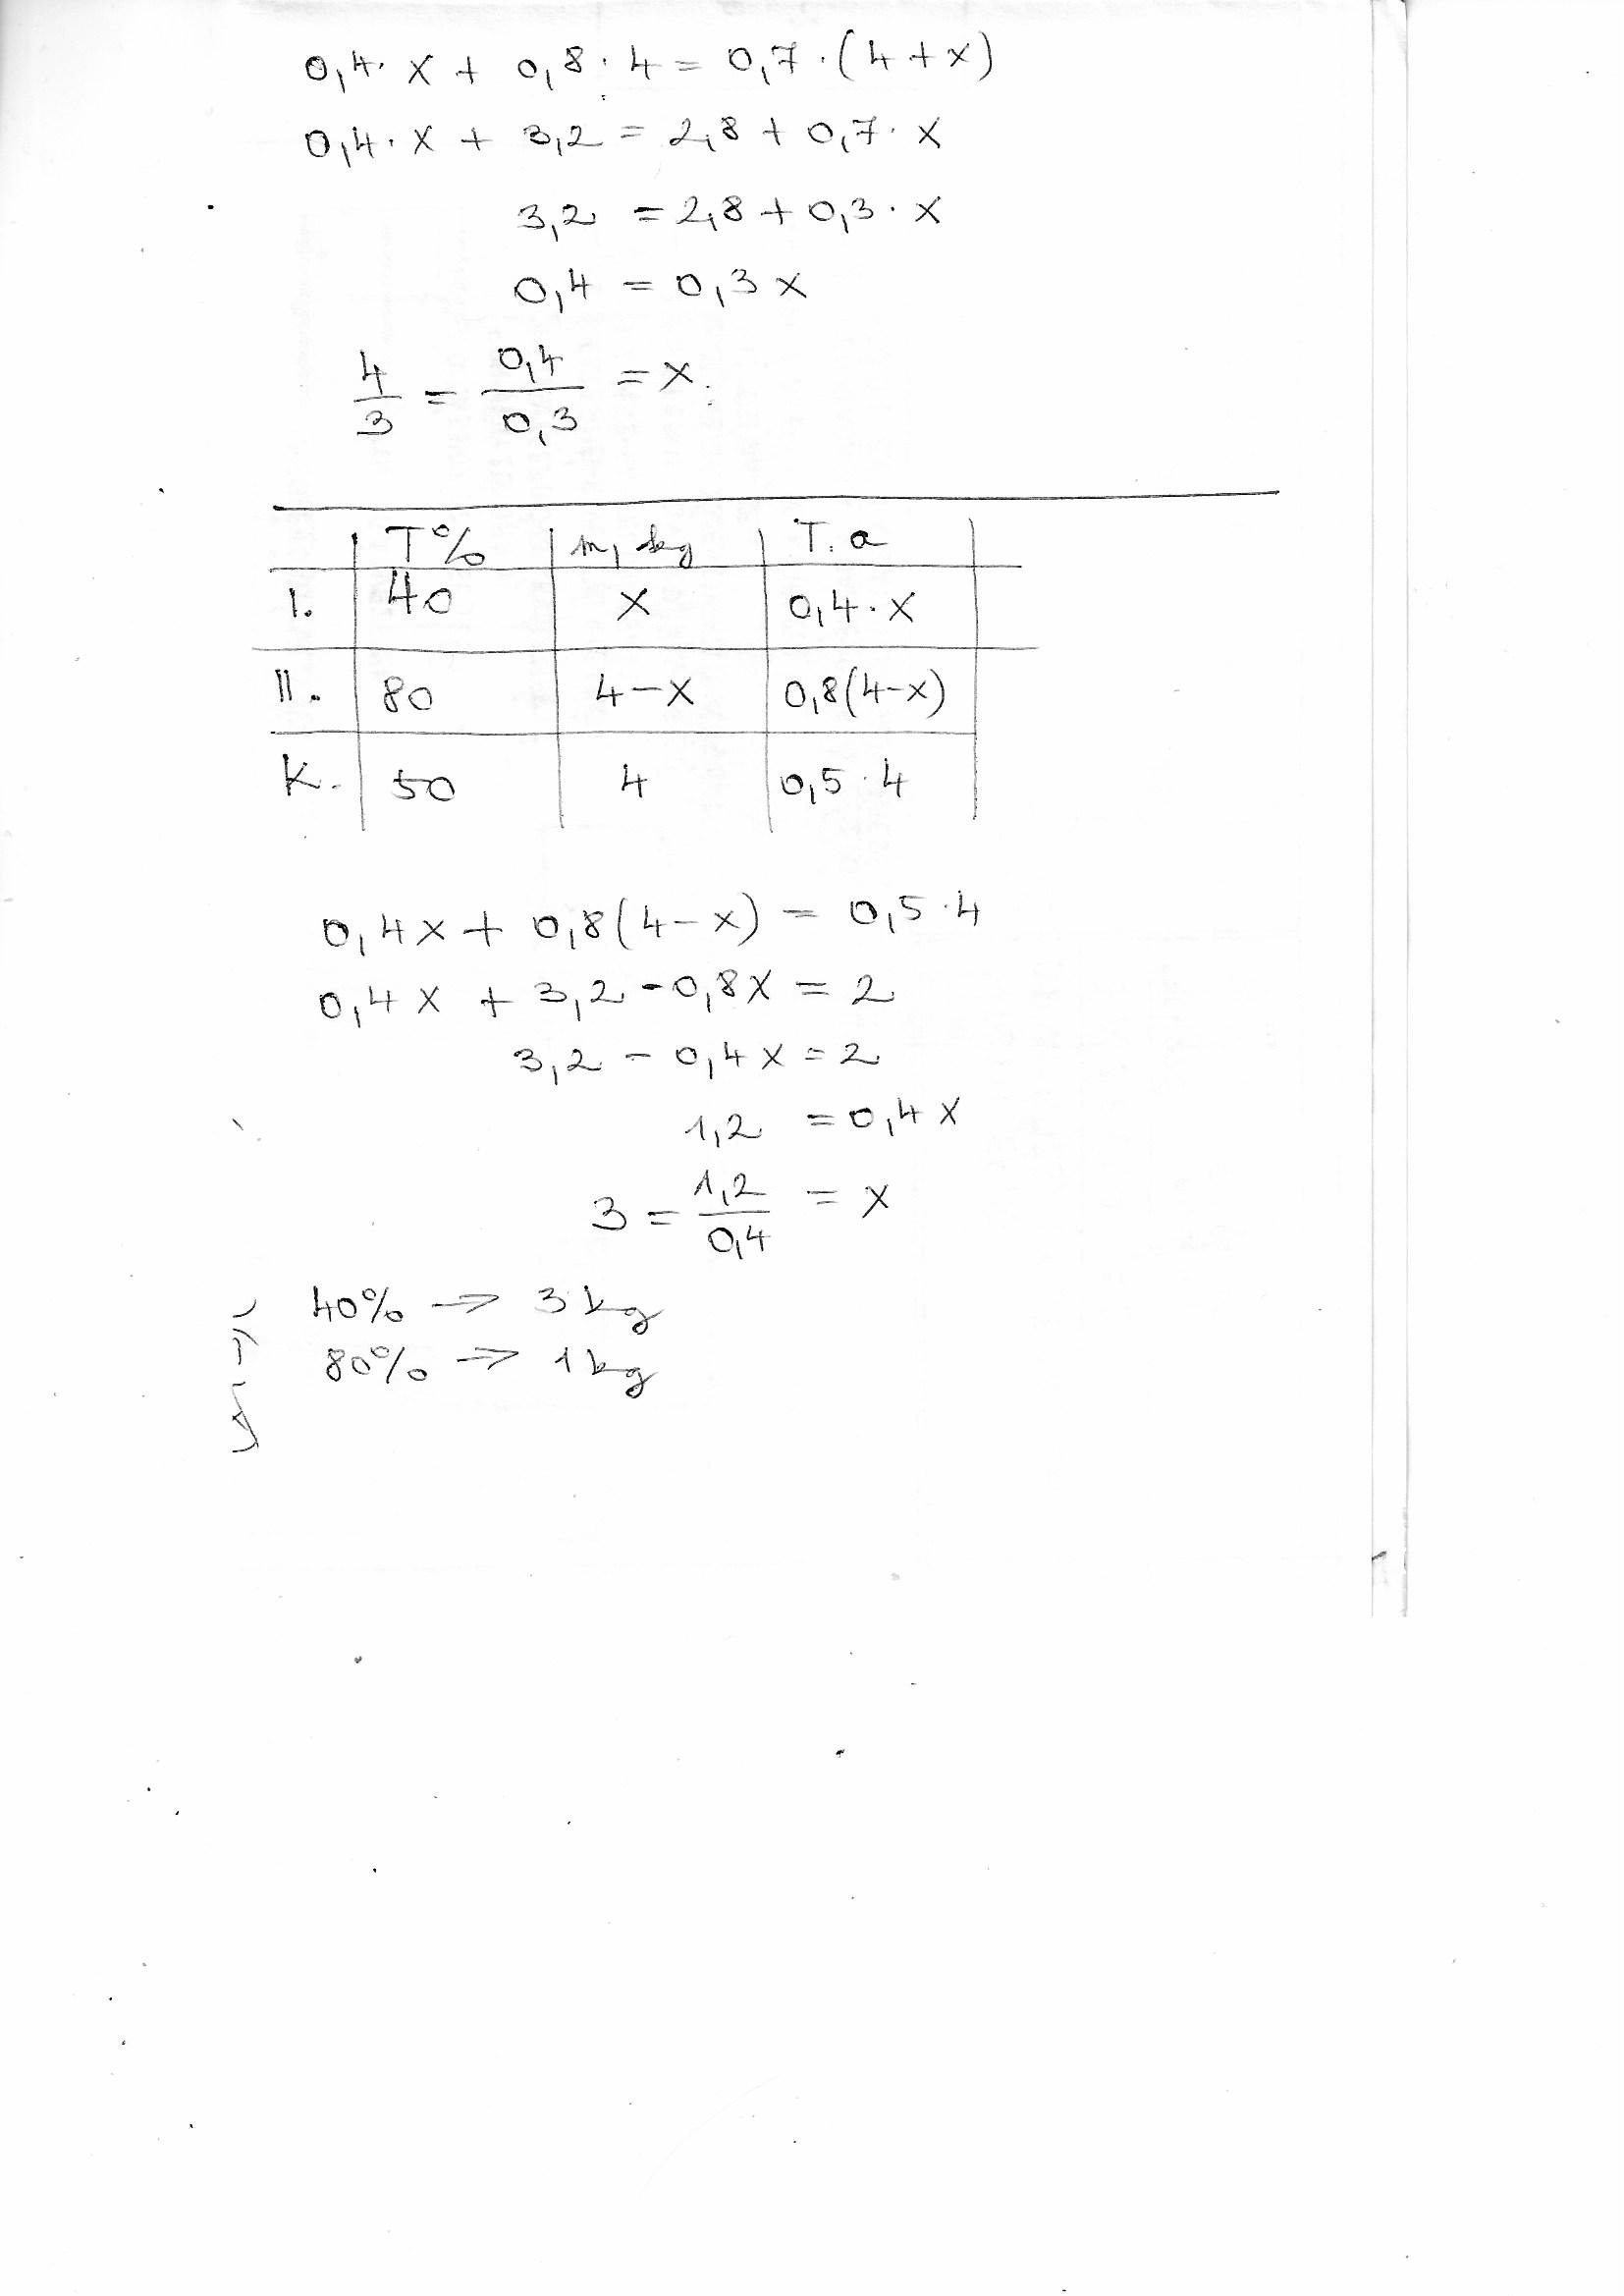 0,4·x + 0,8·4 = 0,7·(4+x)
0,4·x + 3,2 = 2,8 + 0,7·x
3,2 = 2,8 + 0,3·x
0,4 = 0,3x
4/3 = 0,4/0,3 = x.
T% m, kg T.a
I. 40 x 0,4·x
II. 80 4-x 0,8(4-x)
K. 50 4 0,5·4
0,4x + 0,8(4-x) = 0,5·4
0,4x + 3,2 - 0,8x = 2
3,2 - 0,4x = 2
1,2 = 0,4x
3 = 1,2/0,4 = x
40% → 3 kg
80% → 1 kg